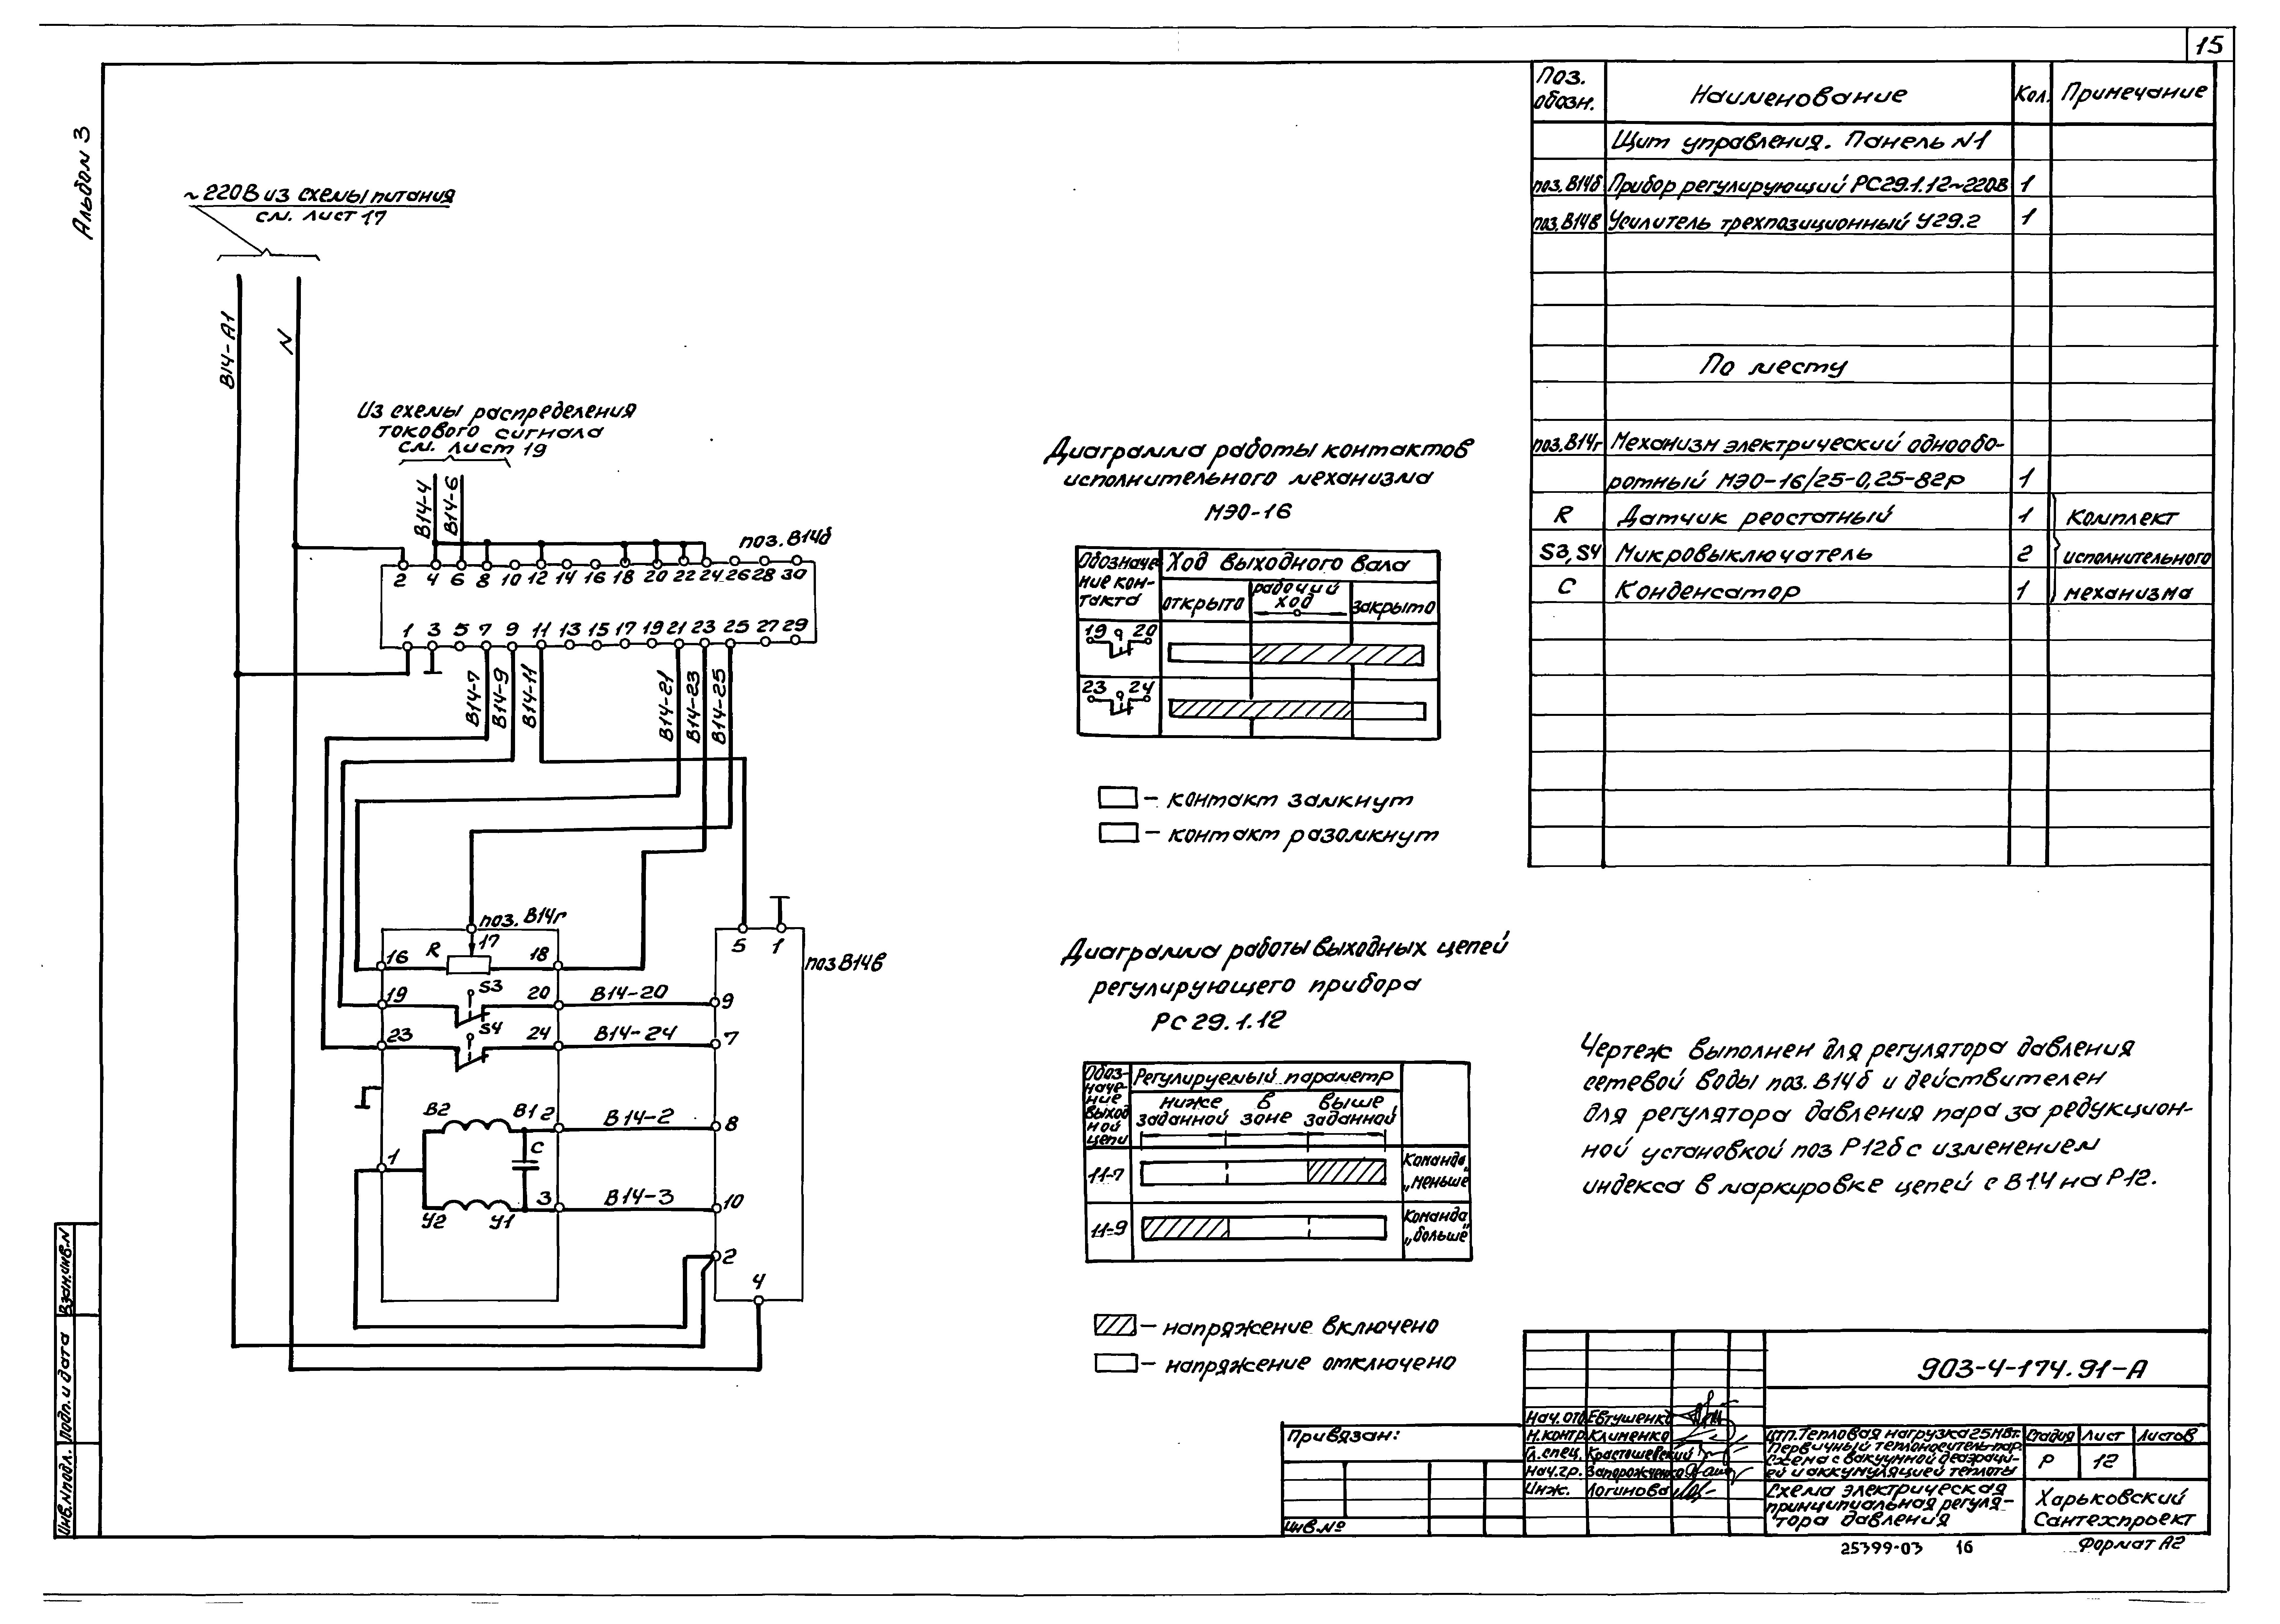 15
Альбом 3
~220В из схемы питания
см. лист 17
В14-А1
N
Из схемы распределения
токового сигнала
см. лист 19
В14-4
В14-6
поз. В14б
2 4 6 8 10 12 14 16 18 20 22 24 26 28 30
1 3 5 7 9 11 13 15 17 19 21 23 25 27 29
В14-7
В14-9
В14-11
В14-21
В14-23
В14-25
поз. В14г
16 R 17 18
19 S3 20 В14-20 9
23 S4 24 В14-24 7
5 1
поз В14в
В2 В1 2 В14-2 8
1
С
У2 У1 3 В14-3 10
2
4
Диаграмма работы контактов
исполнительного механизма
МЭО-16
Обозначе-
ние кон-
такта
Ход выходного вала
открыто
рабочий
ход
закрыто
19 20
23 24
– контакт замкнут
– контакт разомкнут
Диаграмма работы выходных цепей
регулирующего прибора
РС 29.1.12
Обоз-
наче-
ние
выход
ной
цепи
Регулируемый параметр
ниже
заданной
в
зоне
выше
заданной
11-7
Команда
„меньше"
11-9
Команда
„больше"
– напряжение включено
– напряжение отключено
Поз.
обозн.
Наименование
Кол.
Примечание
Щит управления. Панель N1
поз. В14б Прибор регулирующий РС29.1.12~220В 1
поз. В14в Усилитель трехпозиционный У29.2 1
По месту
поз. В14г Механизм электрический однообо-
ротный МЭО-16/25-0,25-82р 1
R Датчик реостатный 1 Комплект
S3, S4 Микровыключатель 2 исполнительного
С Конденсатор 1 механизма
Чертеж выполнен для регулятора давления
сетевой воды поз. В14б и действителен
для регулятора давления пара за редукцион-
ной установкой поз Р12б с изменением
индекса в маркировке цепей с В14 на Р12.
903-4-174.91-А
Привязан:
Инв.№
Нач. отд. Евтушенко
Н.контр. Клименко
Гл.спец. Красташевский
Нач.гр. Запорожченко
Инж. Логинова
ЦТП. Тепловая нагрузка 25 МВт.
Первичный теплоноситель-пар.
Схема с вакуумной деаэраци-
ей и аккумуляцией теплоты
Стадия Лист Листов
Р 12
Схема электрическая
принципиальная регуля-
тора давления
Харьковский
Сантехпроект
25399-03 16
Формат А2
Взам.инв.N
Подп. и дата
Инв.Nподл.